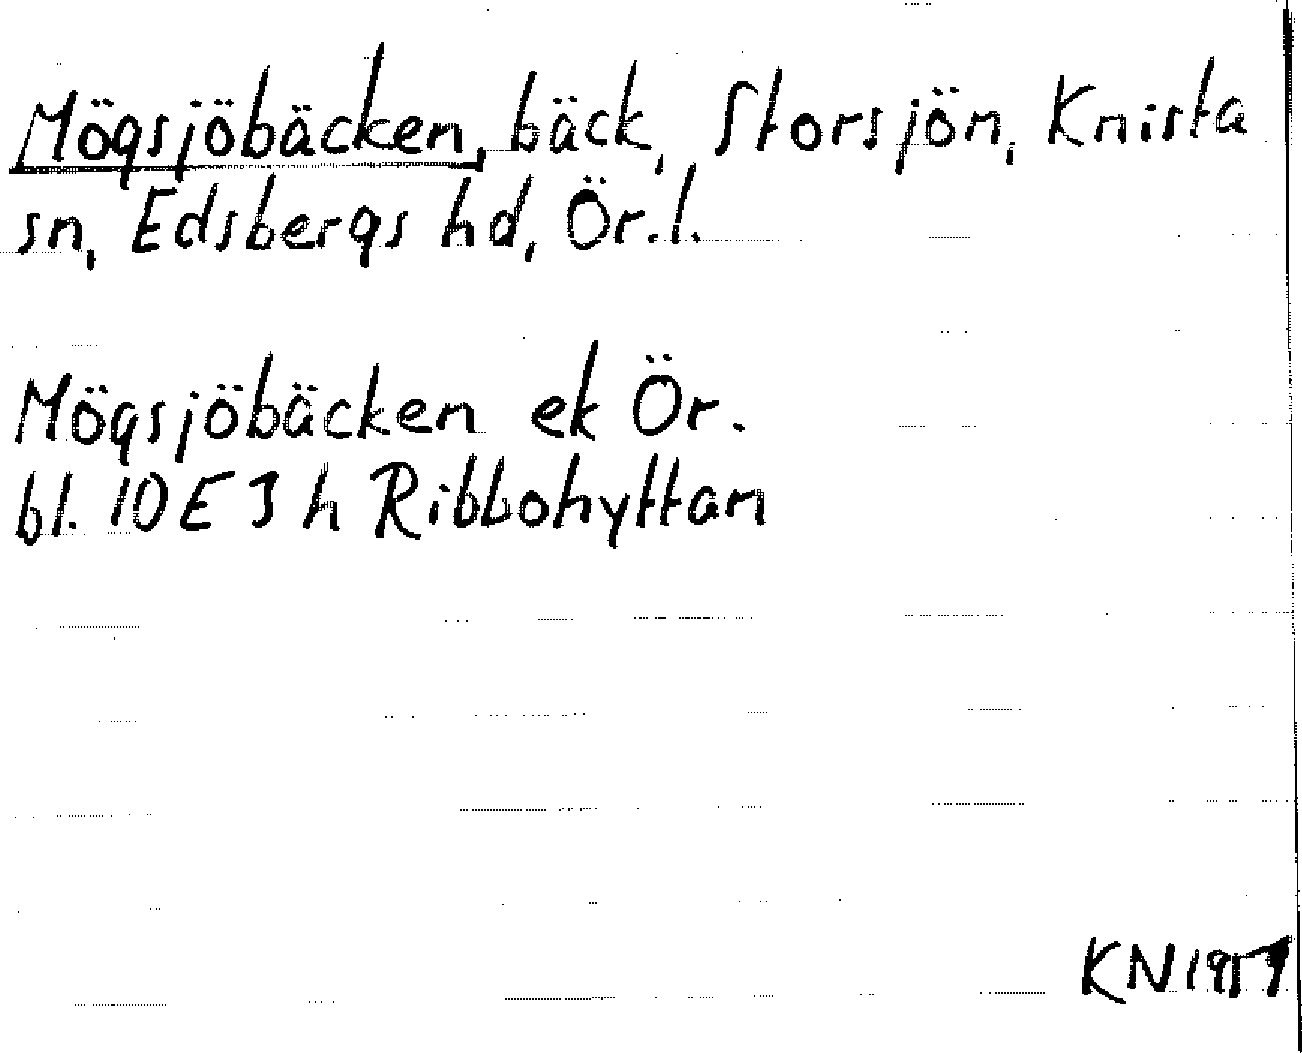 Mögsjöbäcken, bäck, Storsjön, Knista
sn, Edsbergs hd, Ör.l.
Mögsjöbäcken ek Ör.
bl. 10E 3 h Ribbohyttan
KN